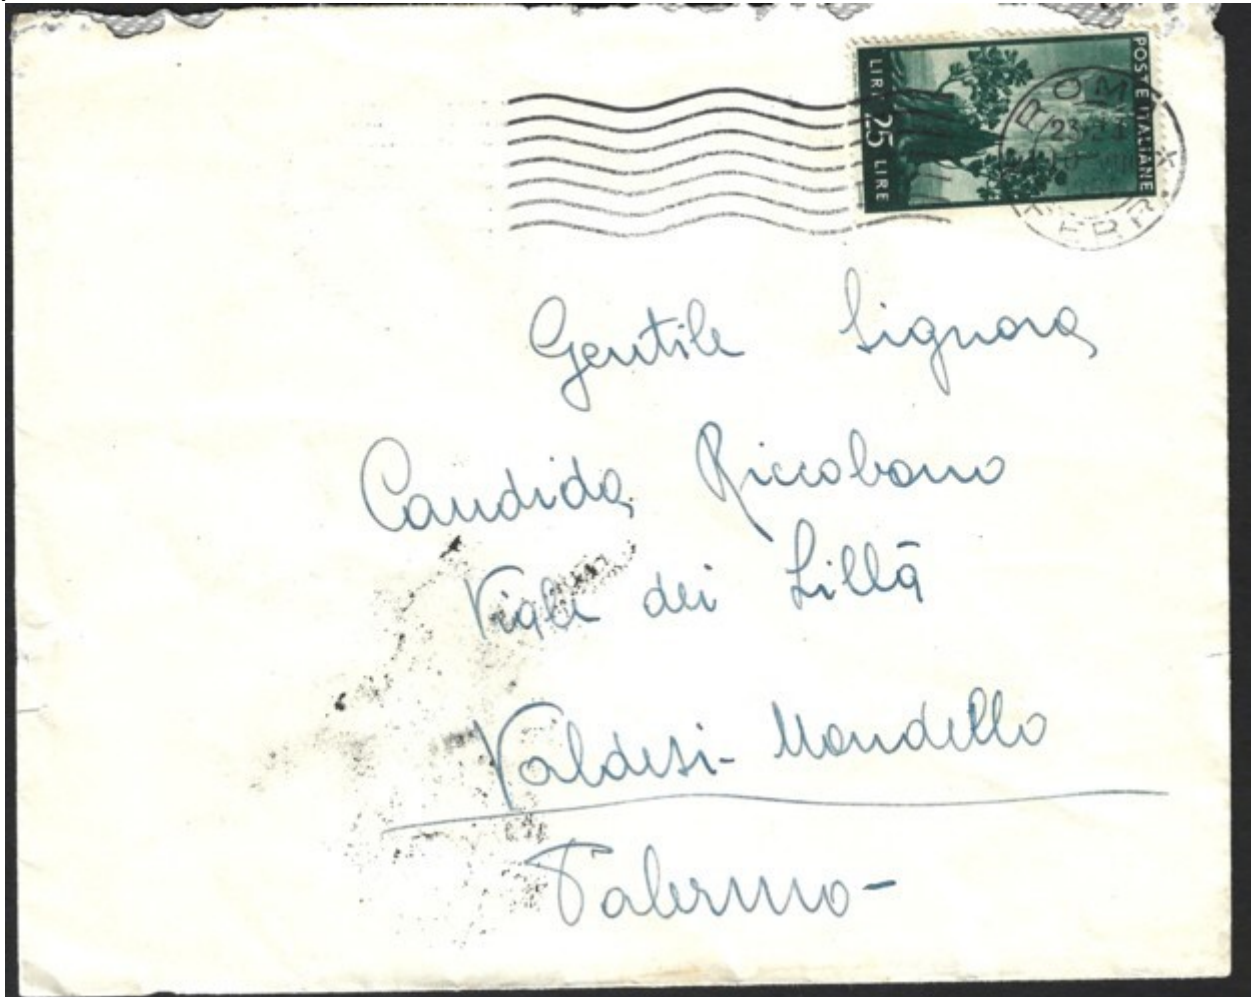 POSTE ITALIANE
LIRE 25 LIRE
ROMA
23-24
FERR
Gentile Signora
Candida Riccobono
Viale dei Lillà
Valdesi - Mondello
Palermo -